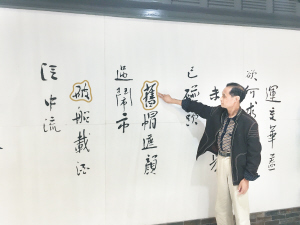 運交華蓋
欲何求
未 身
已碰頭
舊帽遮顏
過鬧市
破船載酒
泛中流